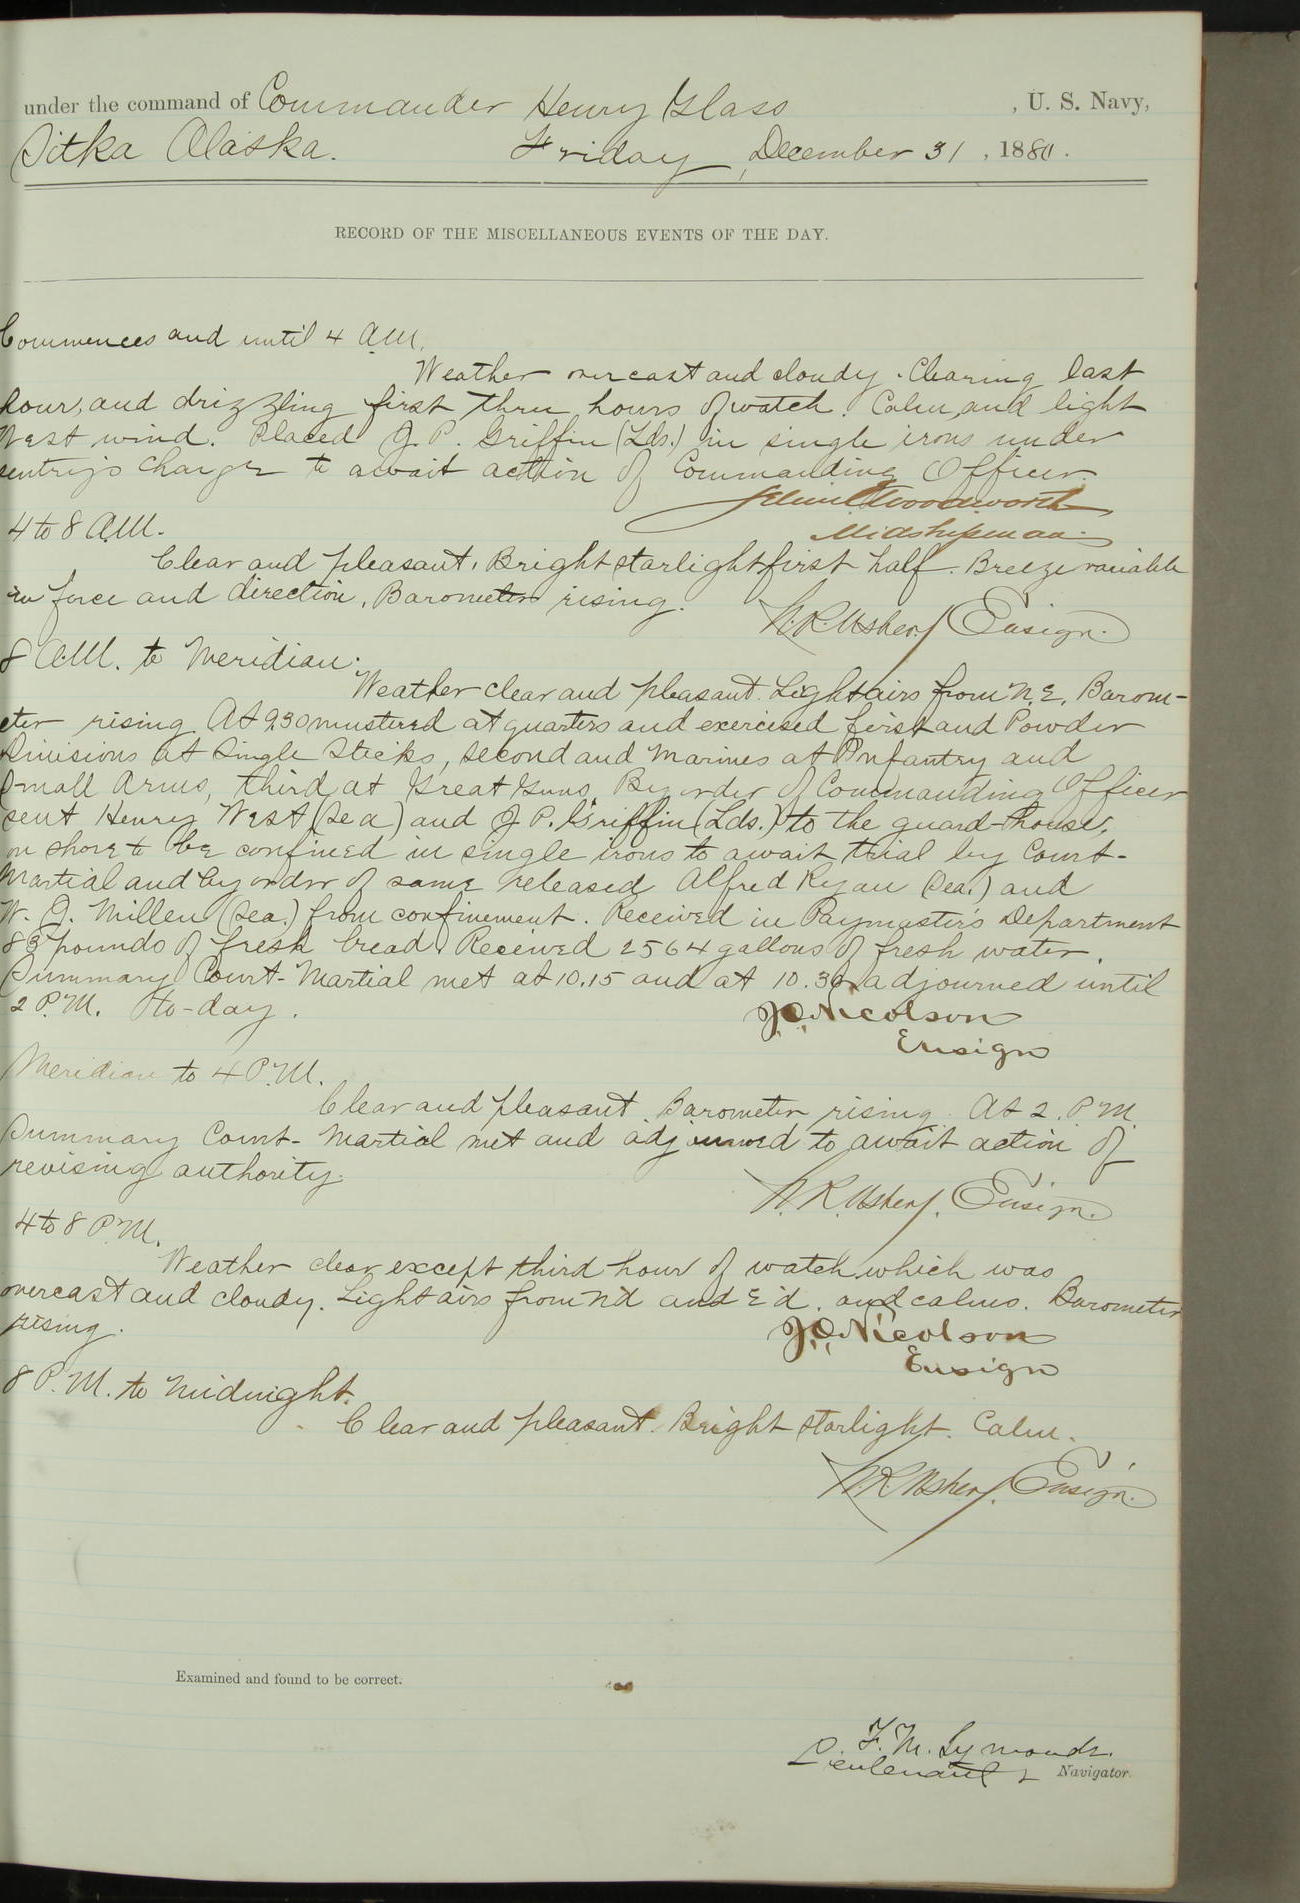 under the command of Commander Henry Glass , U. S. Navy,
Sitka Alaska. Friday, December 31 , 1880.
RECORD OF THE MISCELLANEOUS EVENTS OF THE DAY.
Commences and until 4 A.M.
Weather overcast and cloudy. Clearing last
hour, and drizzling first three hours of watch. Calm and light
West wind. Placed J. P. Griffin (Lds.) in single irons under
sentry's charge to await action of Commanding Officer.
Woodworth
Midshipman.
4 to 8 A.M.
Clear and pleasant. Bright starlight first half. Breeze variable
in force and direction. Barometer rising. N. R. Usher, Ensign.
8 A.M. to Meridian.
Weather clear and pleasant. Light airs from N.E. Barom-
eter rising. At 9.30 mustered at quarters and exercised first and Powder
Divisions at Single Sticks, second and Marines at Infantry and
Small Arms, third at Great Guns. By order of Commanding Officer
sent Henry West (Sea) and J. P. Griffin (Lds.) to the guard-house,
on shore to be confined in single irons to await trial by Court-
Martial and by order of same released Alfred Ryan (Sea.) and
W. J. Millen (Sea.) from confinement. Received in Paymaster's Department
83 pounds of fresh bread. Received 2564 gallons of fresh water.
Summary Court-Martial met at 10.15 and at 10.30 adjourned until
2 P.M. to-day. J. O. Nicolson
Ensign
Meridian to 4 P.M.
Clear and pleasant. Barometer rising. At 2. P.M.
Summary Court-Martial met and adjourned to await action of
revising authority.
N. R. Usher, Ensign.
4 to 8 P.M.
Weather clear except third hour of watch which was
overcast and cloudy. Light airs from N'd and E'd. and calms. Barometer
rising. J. O. Nicolson
Ensign
8 P.M. to Midnight.
Clear and pleasant. Bright starlight. Calm.
N R Usher, Ensign.
Examined and found to be correct.
F. M. Symonds.
Lieutenant & Navigator.